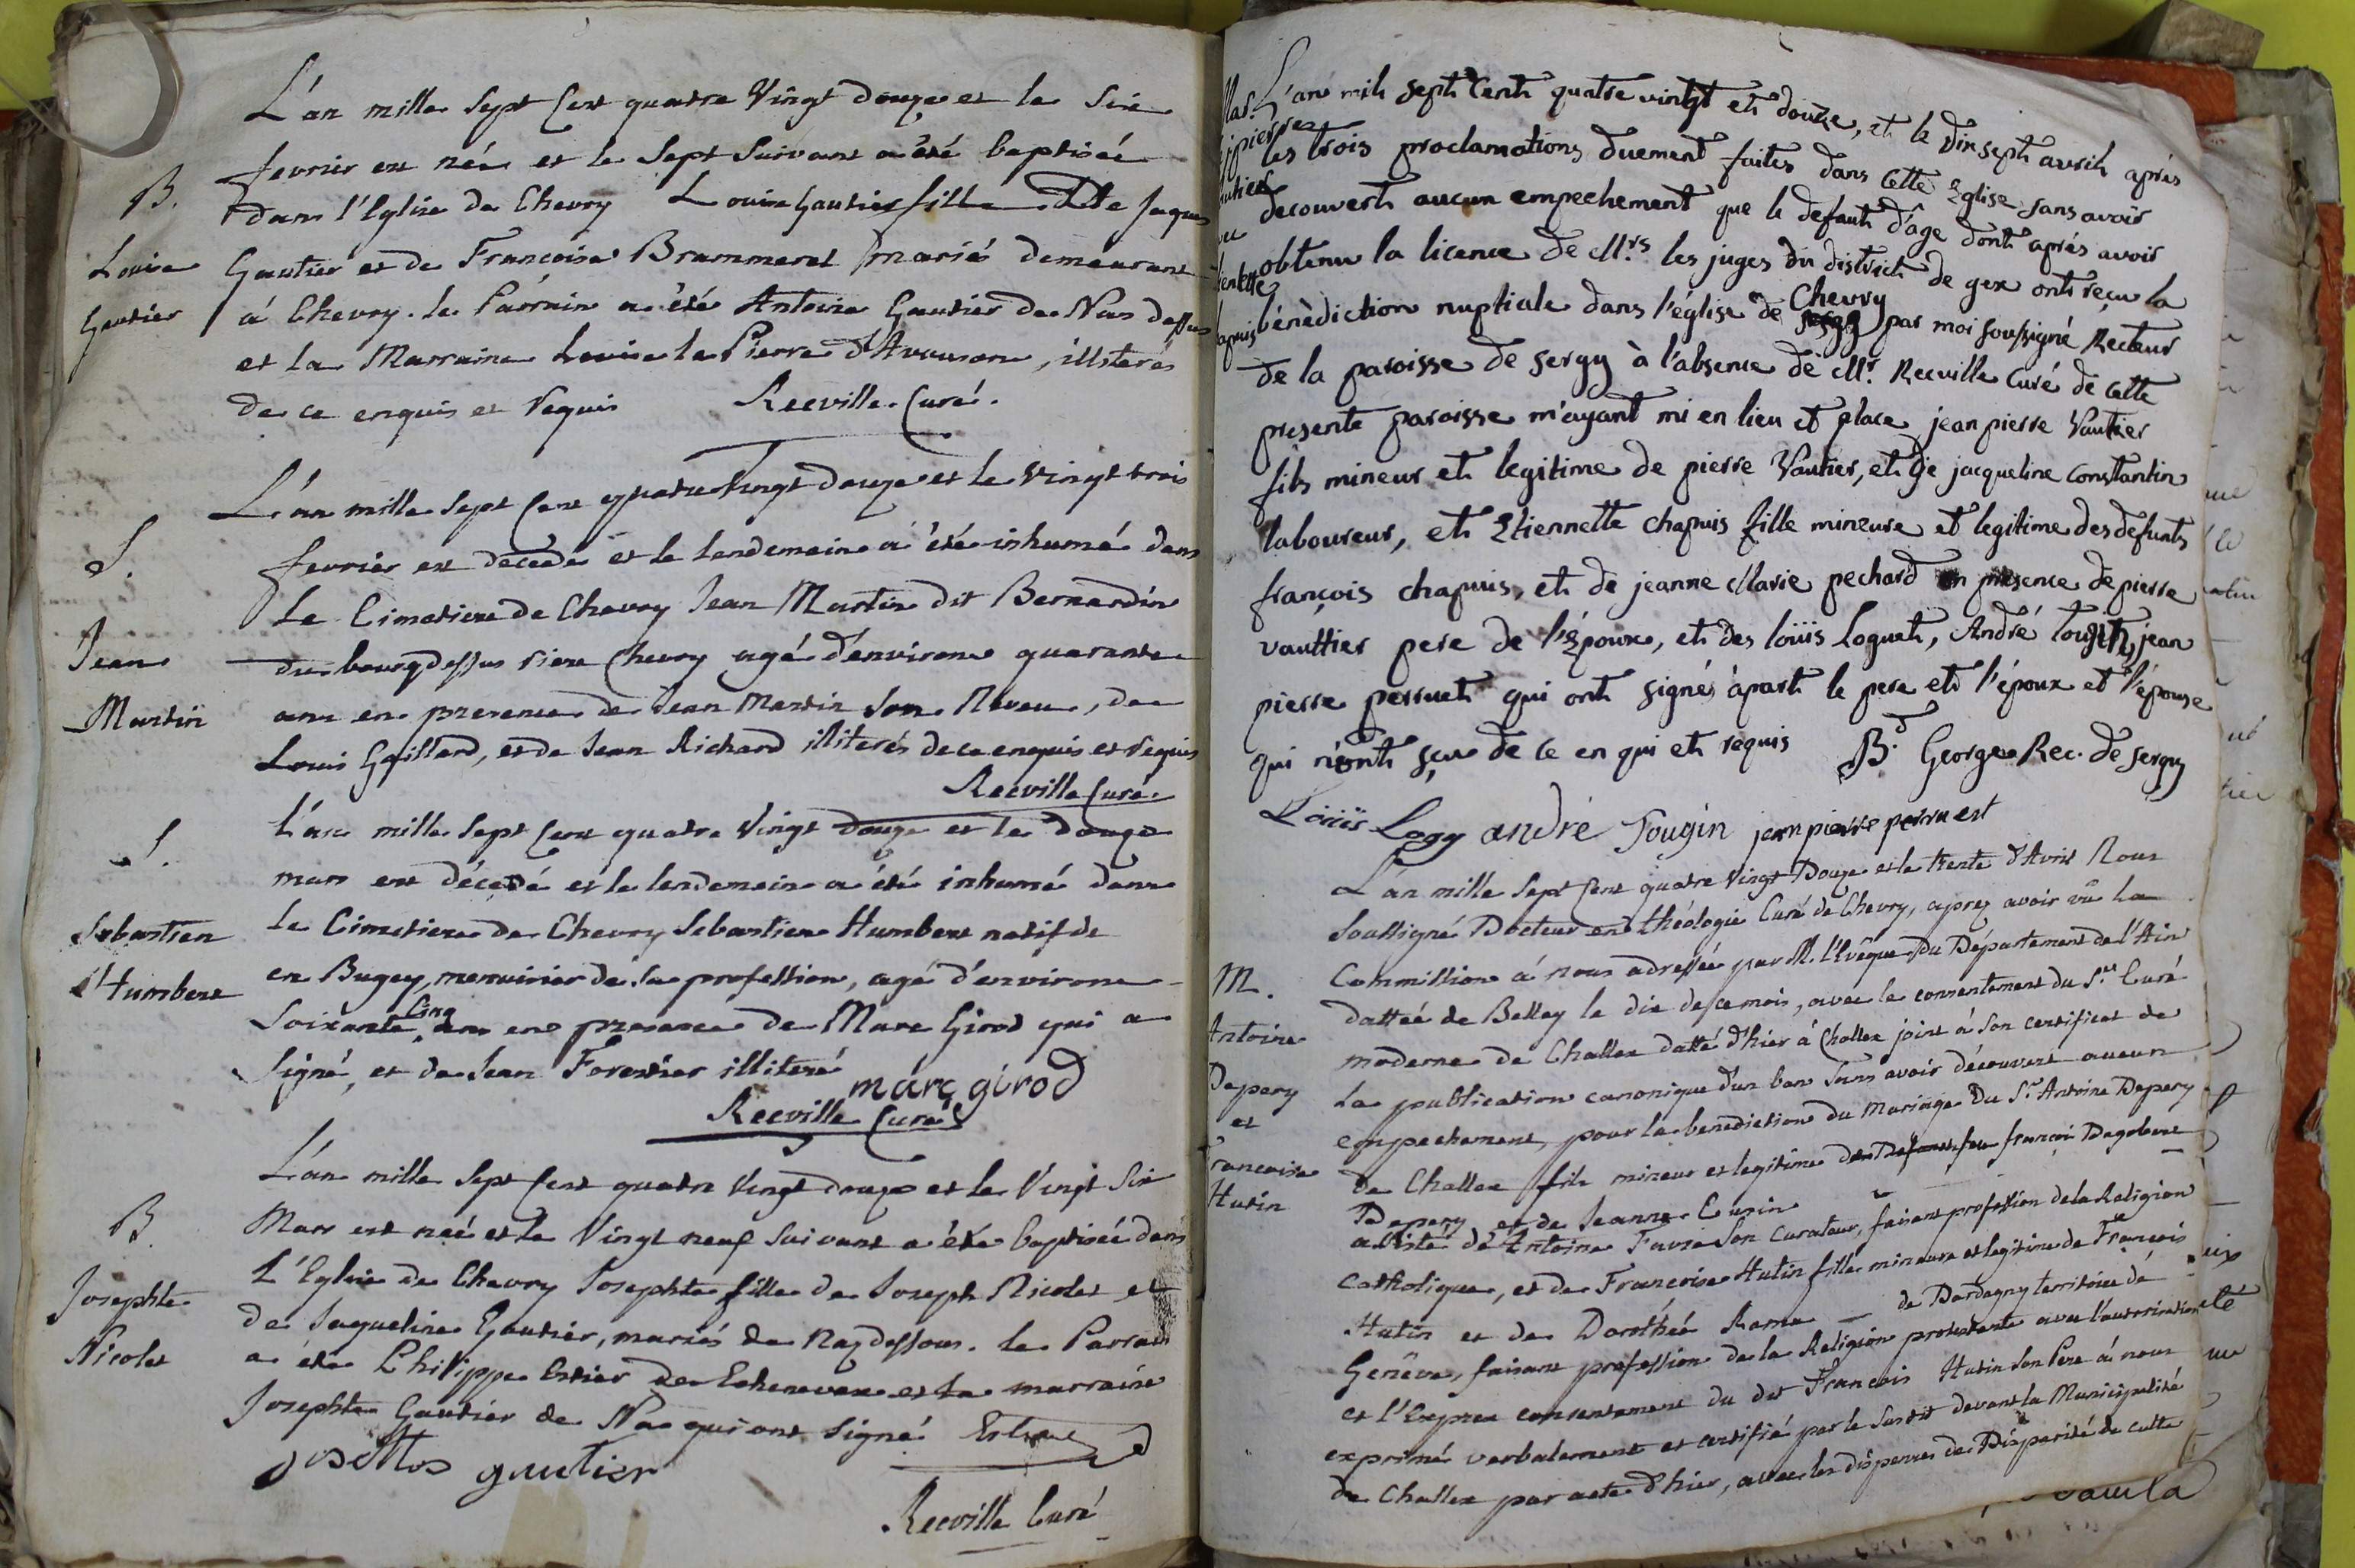 L'an mille Sept Cent quatre Vingt douze et le Six
B.
fevrier est née et le Sept Suivant a été baptisée
dans l'Eglise de Chevry Louise Gautier fille De Jaques
Louise
Gautier
Gautier et de Francoise Brammerel mariés demeurant
à Chevry. le Parrain a été Antoine Gautier de Nas dessus
et la Marraine Louise la Pierre d'Avouson, illiterés
de ce enquis et requis Reeville Curé.
L'an mille Sept Cent quatre Vingt douze et le Vingt trois
S.
fevrier est décedé et le lendemain a été inhumé dans
Le Cimetiere de Chevry Jean Martin dit Bernardin
Jean
Martin
du bourg dessus riere Chevry agé d'environ quarante
ans en presence de Jean Martin Son Neveu, de
Louis Gaillard, et de Jean Richard illiterés de ce enquis et requis
Reeville Curé.
S.
L'an mille Sept Cent quatre Vingt douze et le douze
mars est décedé et le lendemain a été inhumé dans
Sebastien
Humbert
le Cimetiere de Chevry Sebastien Humbert natif de
en Bugey, menuisier de sa profession, agé d'environ
Soixante Cinq ans en presence de Marc Girod qui a
Signé, et de Jean Forestier illiteré
marc girod
Reeville Curé
L'an mille Sept Cent quatre Vingt douze et le Vingt Six
B.
Mars est neé et le Vingt neuf Suivant a été baptisée dans
Josephte
Nicolet
L'Eglise de Chevry Josephte fille de Joseph Nicolet et
de Jaqueline Gautier, mariés de Naz dessous. le Parrain
a été Philippe Estier de Echenevex et la marraine
Josephte Gautier de Na qui ont Signé
gautier
Reeville Curé
L'an mil sept cent quatre vingt et douze, et le dix sept avril après
les trois proclamations duement faites dans cette Eglise sans avoir
decouvert aucun empechement que le defaut d'âge dont aprés avoir
obtenu la licence de Mrs les juges du district de gex ont reçu la
bénédiction nuptiale dans l'église de Chevry par moi soussigné Recteur
de la paroisse de sergy à l'absence de Mr. Reeville curé de cette
presente paroisse m'ayant mi en lieu et place jean pierre Vautier
fils mineur et legitime de pierre Vautier, et de jacqueline constantin
laboureur, et Etiennette chapuis fille mineure et legitime des defunts
françois chapuis, et de jeanne Marie pechard en presence de pierre
vauttier pere de l'Époux, et des loüis Loguet, André tougin, jean
pierre perruet qui ont signés àpart le pere et l'époux et l'épouse
qui n'ont sçu de ce en qui et requis Bd. George Rec. de sergy
Loüis Logy andré Tougin jean pierre perruest
L'an mille Sept Cent quatre Vingt Douze et le trente d'Avril Nous
Soussigné Docteur en théologie Curé de Chevry, aprez avoir vû la
M.
Antoine
Depery
et
Francoise
Hutin
Commission à nous adressée par M. l'Evêque du Département de l'Ain
dattée de Belley le dix de ce mois, avec le consentement du Sr. Curé
moderne de Challex datté d'hier à Challex joint à Son certificat de
La publication canonique d'un ban Sans avoir découvert aucun
empechement, pour la benediction du Mariage Du Sr. Antoine Depery
de Challex fils mineur et legitime feu françoi Dagobert
Depery et de Jeanne Cusin
assisté de Antoine Favre Son Curateur, faisant profession de la Religion
Catholique, et de Francoise Hutin fille mineure et legitime de François
Hutin et de Dorothée Rame de Dardagny territoire de
Genève, faisant profession de la Religion protestante avec l'autorisation
et l'Exprex consentement du dit François Hutin Son Pere à nous
exprimé verbalement et certifié par le Susdit devant la Municipalité
de Challex par acte d'hier, avec les dispenses de Disparité de culte